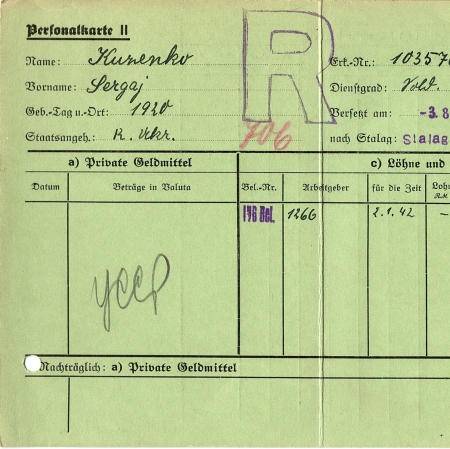 Personalkarte II
R
Name: Kuzenko
Erk.-Nr.: 103570
Vorname: Sergaj
Dienstgrad: Sold.
Geb.-Tag u.-Ort: 1920
Versetzt am: -3.8
Staatsangeh.: R. Ukr.
706
nach Stalag: Stalag
a) Private Geldmittel
c) Löhne und
Datum
Beträge in Valuta
Bel.-Nr.
Arbeitgeber
für die Zeit
Loh
R.M.
176 Bel.
1266
2.1.42
–
УССР
Nachträglich: a) Private Geldmittel